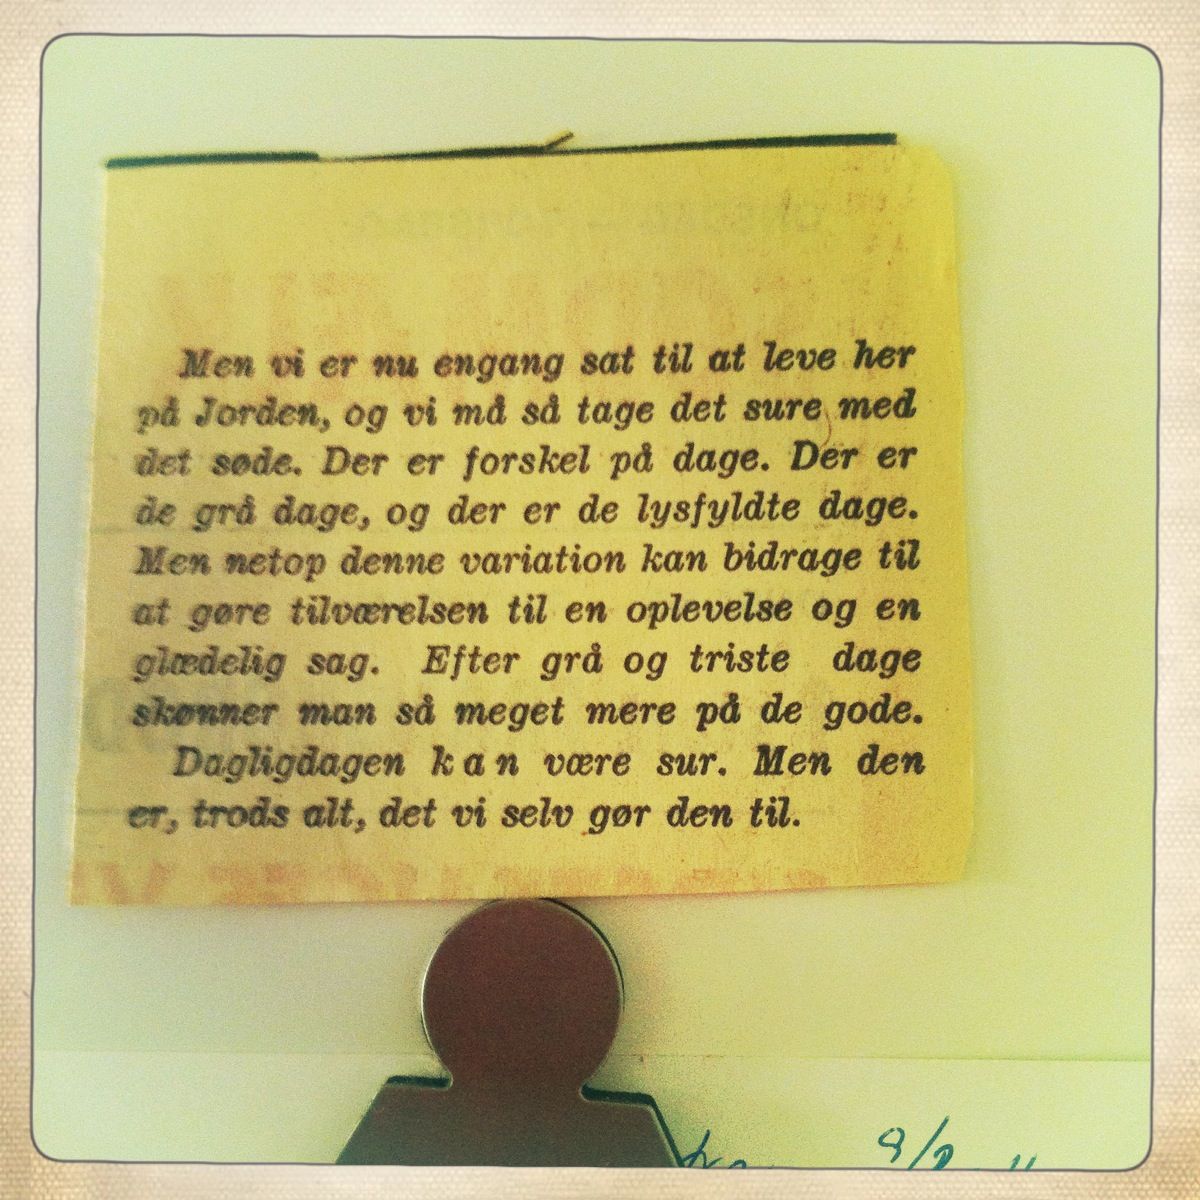 Men vi er nu engang sat til at leve her
på Jorden, og vi må så tage det sure med
det søde. Der er forskel på dage. Der er
de grå dage, og der er de lysfyldte dage.
Men netop denne variation kan bidrage til
at gøre tilværelsen til en oplevelse og en
glædelig sag. Efter grå og triste dage
skønner man så meget mere på de gode.
Dagligdagen kan være sur. Men den
er, trods alt, det vi selv gør den til.